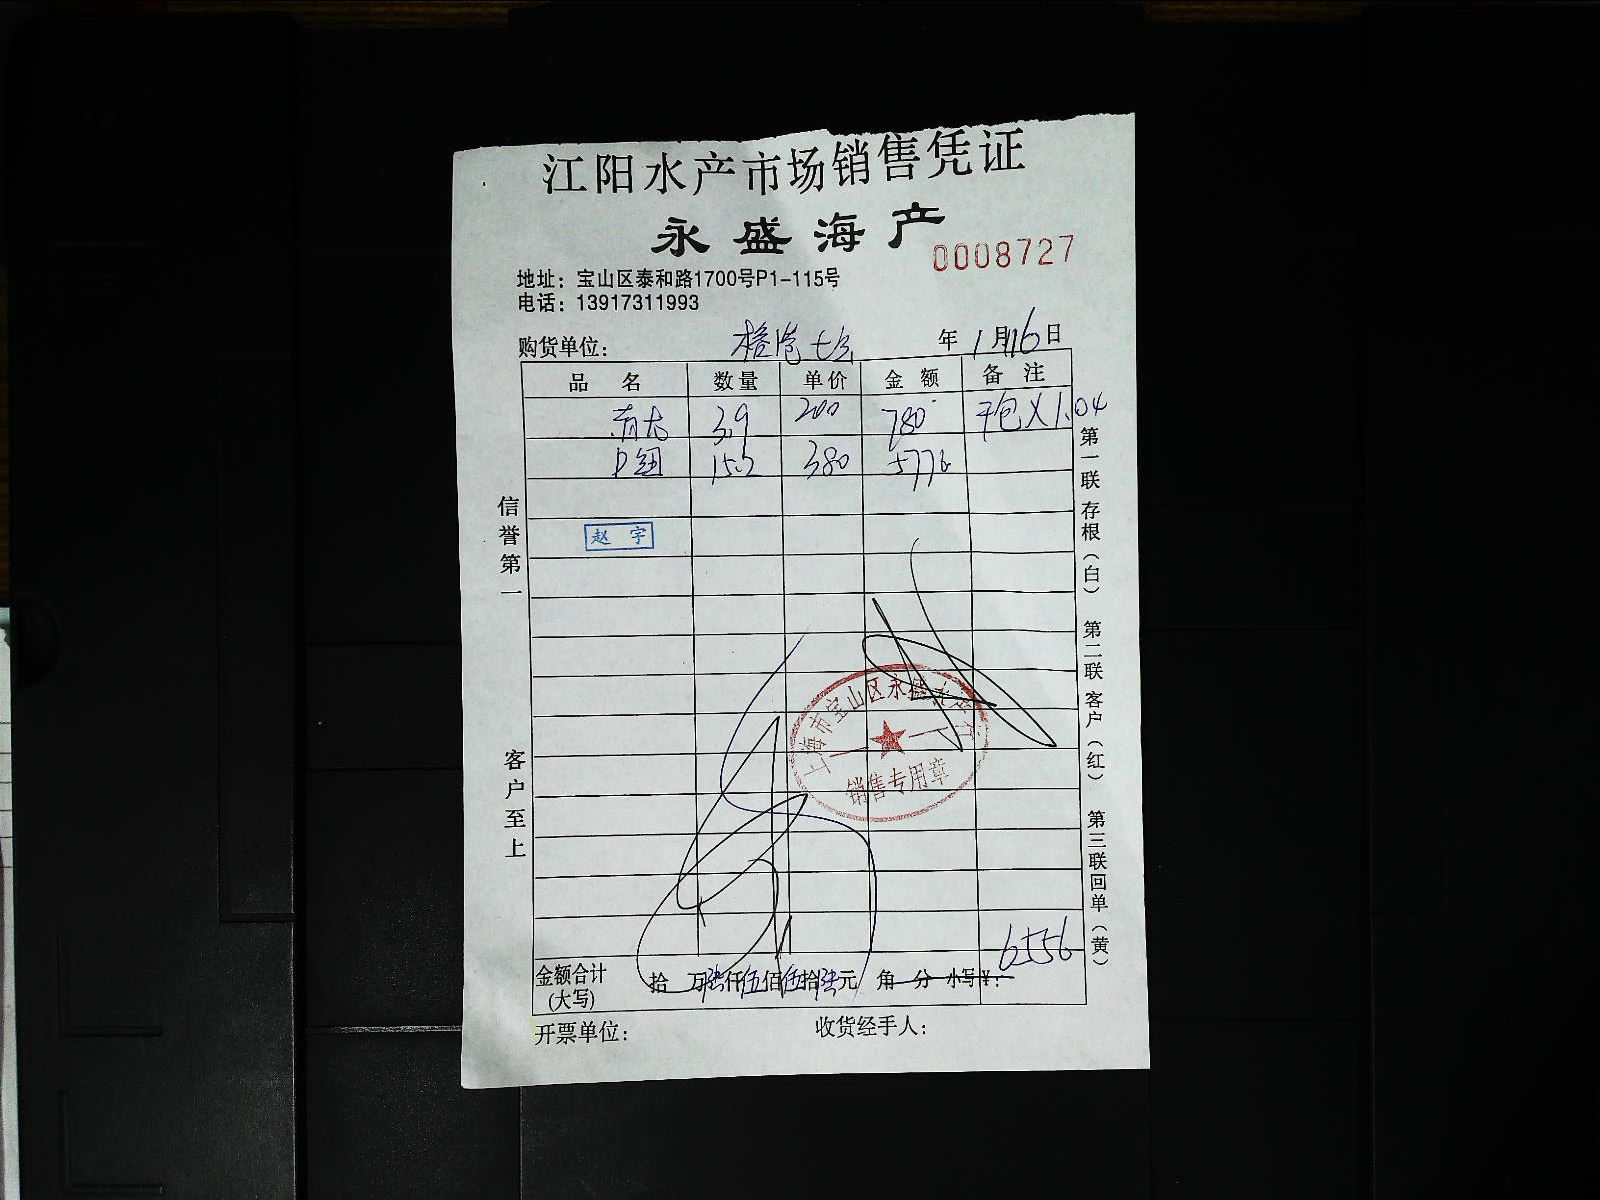 江阳水产市场销售凭证
永盛海产
0008727
地址：宝山区泰和路1700号P1-115号
电话：13917311993
购货单位： 年 1月16日
品 名 数量 单价 金 额 备 注
3.9 200 780 干包X1.04
15.2 380 5776
赵 宇
信誉第一
客户至上
第一联存根（白） 第二联客户（红） 第三联回单（黄）
上海市宝山区永盛水产行
销售专用章
6556
金额合计(大写) 拾 万陆仟伍佰伍拾陆元 角 分 小写¥：
开票单位： 收货经手人：